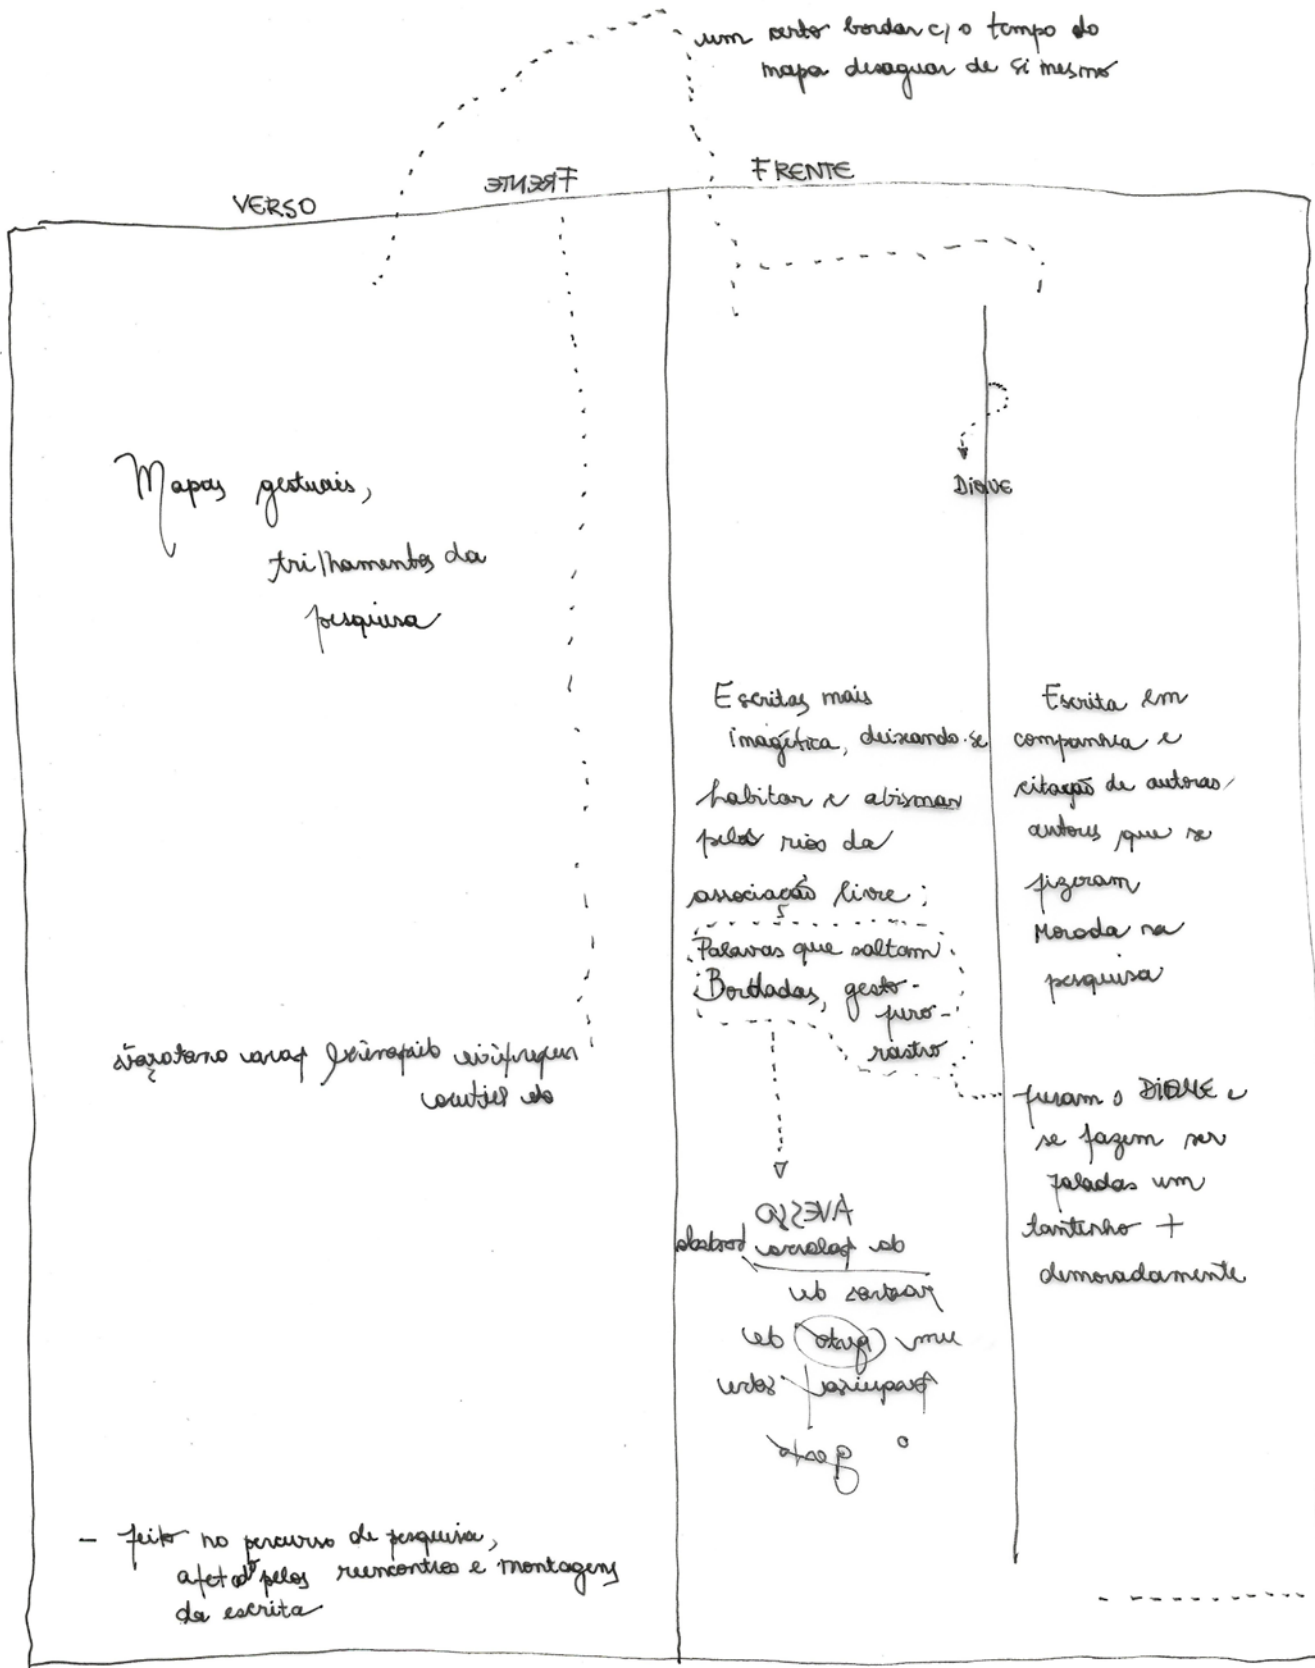 um certo bordar c/ o tempo do
mapa desaguar de si mesmo
VERSO
FRENTE
FRENTE
DIQUE
Mapas gestuais,
trilhamentos da
pesquisa
Escritas mais
imagética, deixando-se
habitar e abismar
pelos rios da
associação livre;
Palavas que saltam
Bordadas, gesto-
furo-
rastro
Escrita em
companhia e
citação de autoras/
autores que se
fizeram
Morada na
pesquisa
superfície disponível para anotação
de leitura
furam o DIQUE e
se fazem ser
faladas um
tantinho +
demoradamente
AVESSO
da palavra bordada
rastros de
um gesto de
pesquisa sobre
o gesto
- feito no percurso de pesquisa,
afetado pelos reencontros e montagens
da escrita